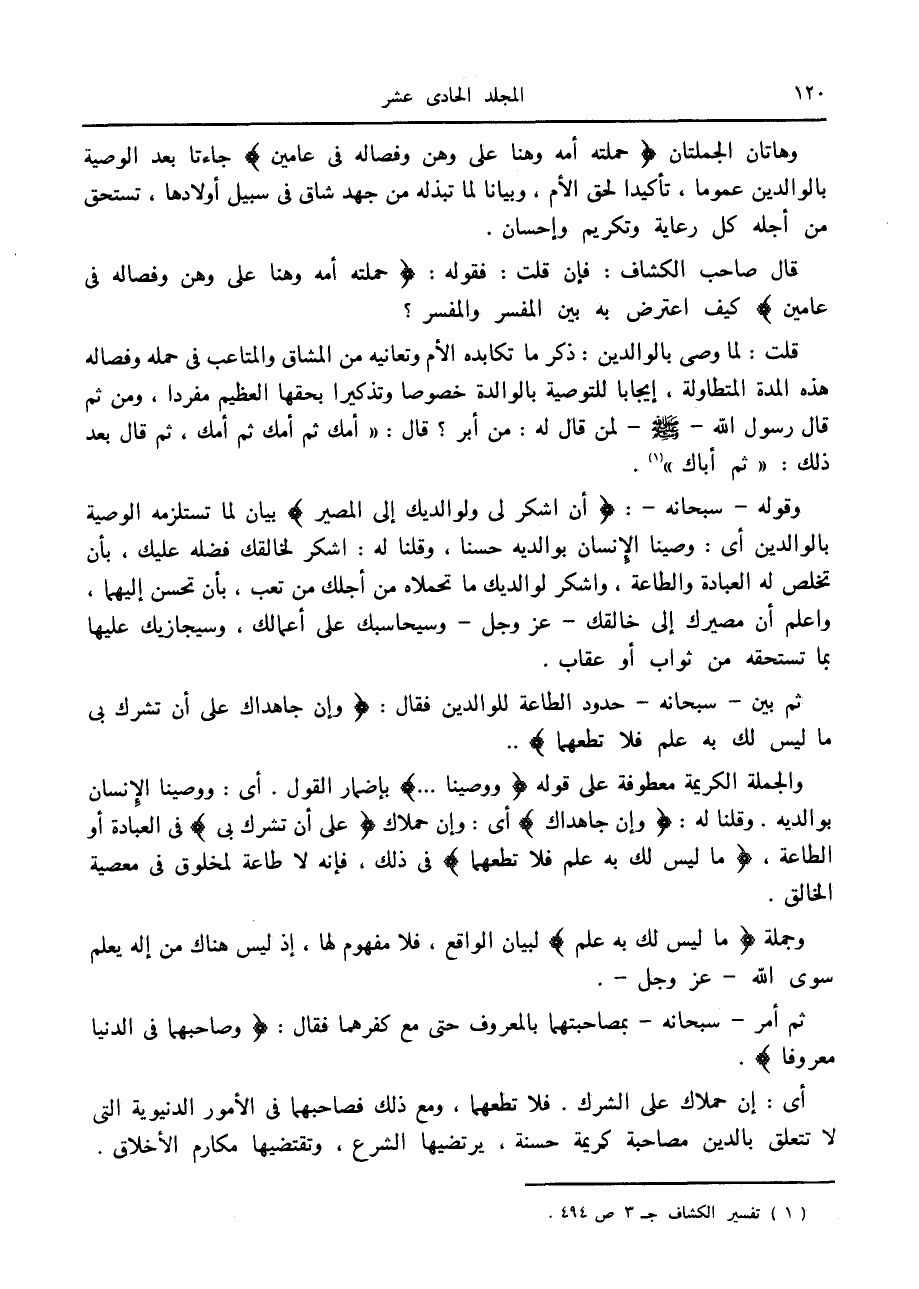 ١٢٠ المجلد الحادى عشر
وهاتان الجملتان ﴿ حملته أمه وهنا على وهن وفصاله فى عامين ﴾ جاءتا بعد الوصية
بالوالدين عموما ، تأكيدا لحق الأم ، وبيانا لما تبذله من جهد شاق فى سبيل أولادها ، تستحق
من أجله كل رعاية وتكريم وإحسان .
قال صاحب الكشاف : فإن قلت : فقوله : ﴿ حملته أمه وهنا على وهن وفصاله فى
عامين ﴾ كيف اعترض به بين المفسر والمفسر ؟
قلت : لما وصى بالوالدين : ذكر ما تكابده الأم وتعانيه من المشاق والمتاعب فى حمله وفصاله
هذه المدة المتطاولة ، إيجابا للتوصية بالوالدة خصوصا وتذكيرا بحقها العظيم مفردا ، ومن ثم
قال رسول الله - ﷺ - لمن قال له : من أبر ؟ قال : « أمك ثم أمك ثم أمك ، ثم قال بعد
ذلك : « ثم أباك »(١) .
وقوله - سبحانه - : ﴿ أن اشكر لى ولوالديك إلى المصير ﴾ بيان لما تستلزمه الوصية
بالوالدين أى : وصينا الإنسان بوالديه حسنا ، وقلنا له : اشكر لخالقك فضله عليك ، بأن
تخلص له العبادة والطاعة ، واشكر لوالديك ما تحملاه من أجلك من تعب ، بأن تحسن إليهما ،
واعلم أن مصيرك إلى خالقك - عز وجل - وسيحاسبك على أعمالك ، وسيجازيك عليها
بما تستحقه من ثواب أو عقاب .
ثم بين - سبحانه - حدود الطاعة للوالدين فقال : ﴿ وإن جاهداك على أن تشرك بى
ما ليس لك به علم فلا تطعهما ﴾ ..
والجملة الكريمة معطوفة على قوله ﴿ ووصينا ...﴾ بإضمار القول . أى : ووصينا الإنسان
بوالديه . وقلنا له : ﴿ وإن جاهداك ﴾ أى : وإن حملاك ﴿ على أن تشرك بى ﴾ فى العبادة أو
الطاعة ، ﴿ ما ليس لك به علم فلا تطعهما ﴾ فى ذلك ، فإنه لا طاعة لمخلوق فى معصية
الخالق .
وجملة ﴿ ما ليس لك به علم ﴾ لبيان الواقع ، فلا مفهوم لها ، إذ ليس هناك من إله يعلم
سوى الله - عز وجل - .
ثم أمر - سبحانه - بمصاحبتهما بالمعروف حتى مع كفرهما فقال : ﴿ وصاحبهما فى الدنيا
معروفا ﴾ .
أى : إن حملاك على الشرك . فلا تطعهما ، ومع ذلك فصاحبهما فى الأمور الدنيوية التى
لا تتعلق بالدين مصاحبة كريمة حسنة ، يرتضيها الشرع ، وتقتضيها مكارم الأخلاق .
( ١ ) تفسير الكشاف جـ ٣ ص ٤٩٤ .